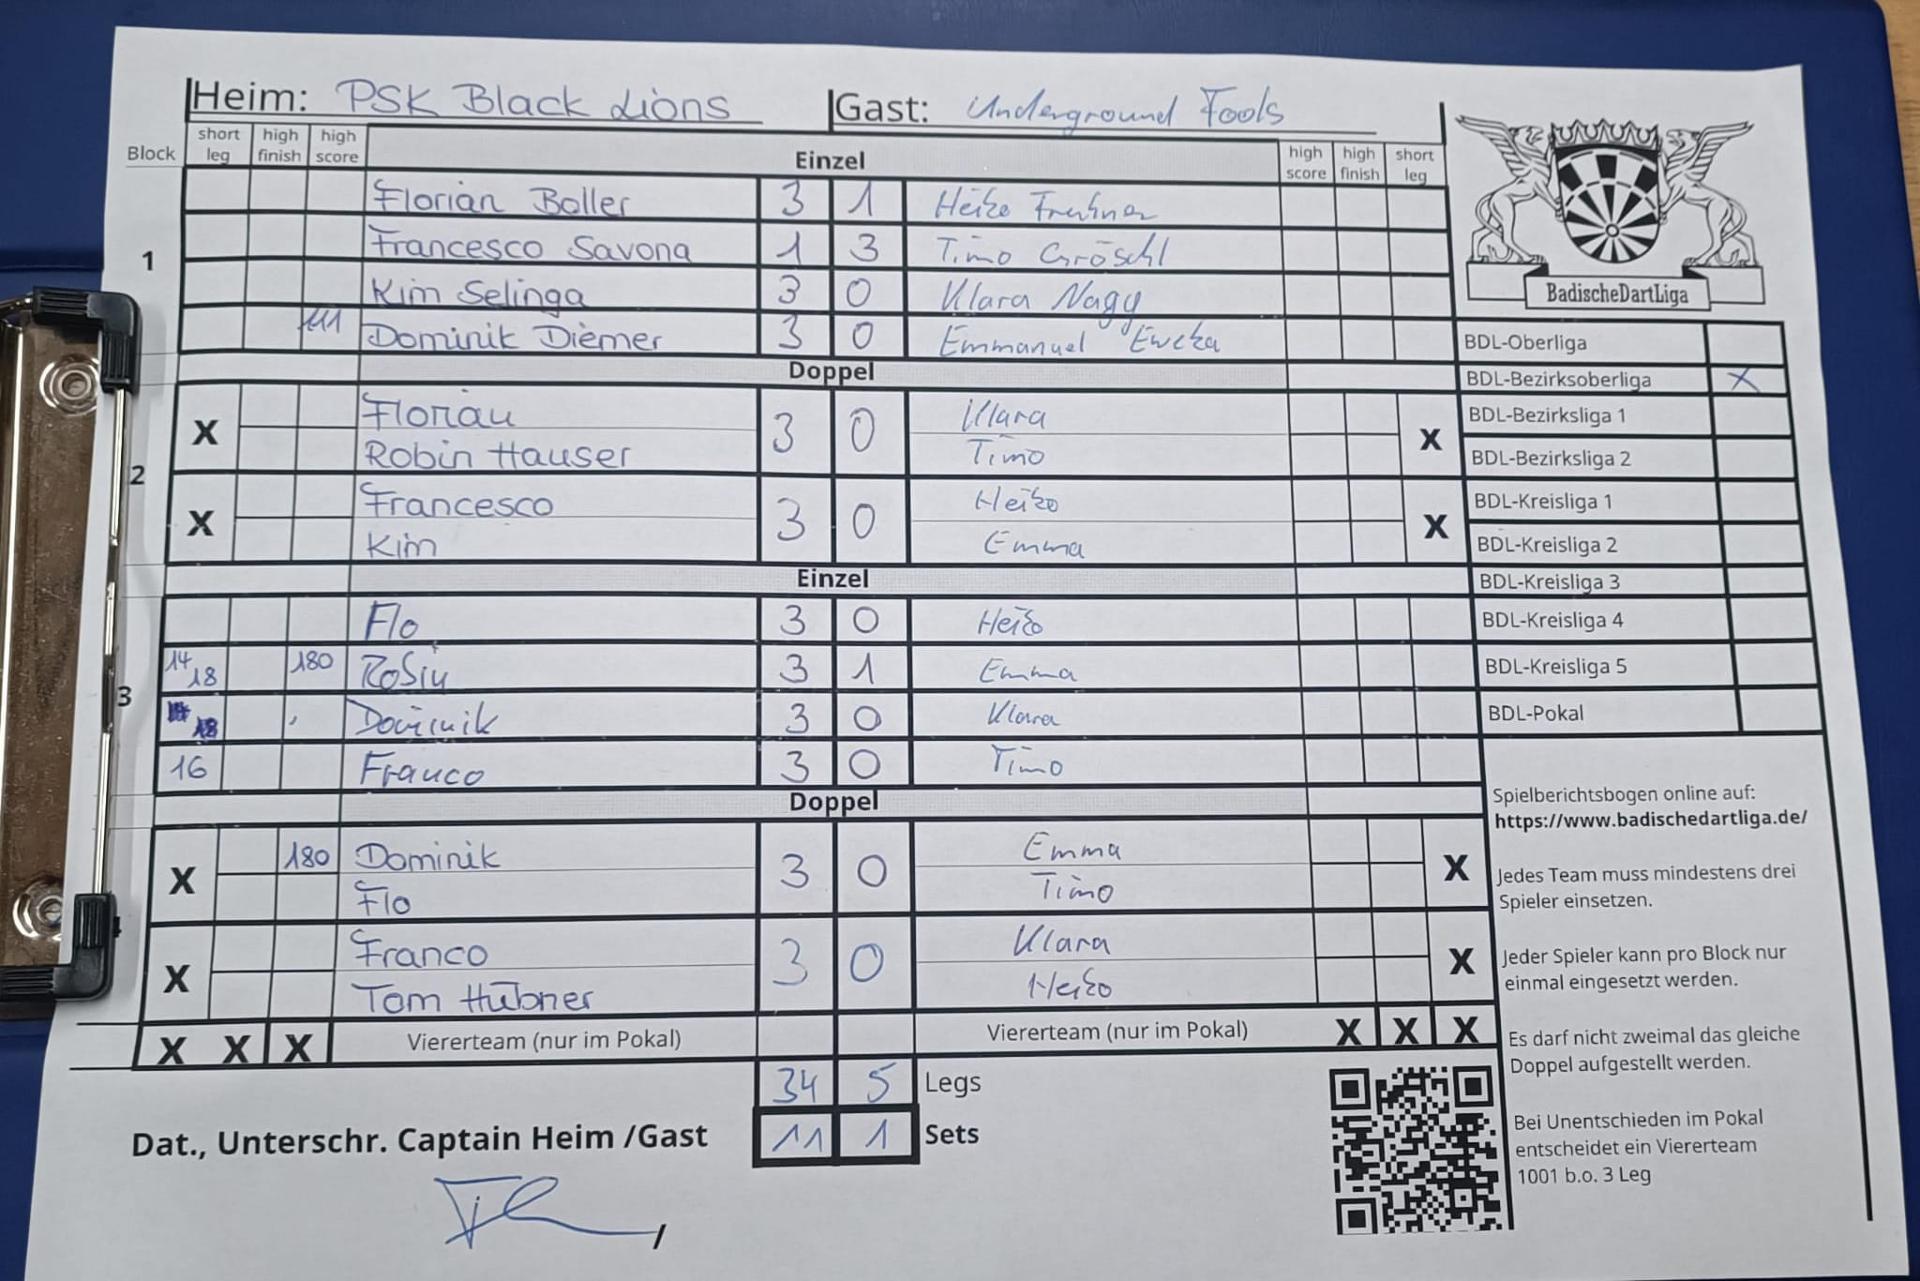 Heim: PSK Black Lions Gast: Underground Fools
Block short leg high finish high score Einzel high score high finish short leg
1
Florian Boller 3 1 Heiko
Francesco Savona 1 3 Timo Gröschl
Kim Selinga 3 0 Klara Nagy
Dominik Diemer 3 0 Emmanuel
BadischeDartLiga
Doppel
2
X Florian 3 0 Klara X
Robin Hauser Timo
X Francesco 3 0 Heiko X
Kim Emma
Einzel
3
Flo 3 0 Heiko
14 18 180 Robin 3 1 Emma
Dominik 3 0 Klara
16 Franco 3 0 Timo
Doppel
X 180 Dominik 3 0 Emma X
Flo Timo
X Franco 3 0 Klara X
Tom Hübner Heiko
X X X Viererteam (nur im Pokal) Viererteam (nur im Pokal) X X X
34 5 Legs
11 1 Sets
Dat., Unterschr. Captain Heim /Gast
/
BDL-Oberliga
BDL-Bezirksoberliga X
BDL-Bezirksliga 1
BDL-Bezirksliga 2
BDL-Kreisliga 1
BDL-Kreisliga 2
BDL-Kreisliga 3
BDL-Kreisliga 4
BDL-Kreisliga 5
BDL-Pokal
Spielberichtsbogen online auf:
https://www.badischedartliga.de/
Jedes Team muss mindestens drei
Spieler einsetzen.
Jeder Spieler kann pro Block nur
einmal eingesetzt werden.
Es darf nicht zweimal das gleiche
Doppel aufgestellt werden.
Bei Unentschieden im Pokal
entscheidet ein Viererteam
1001 b.o. 3 Leg